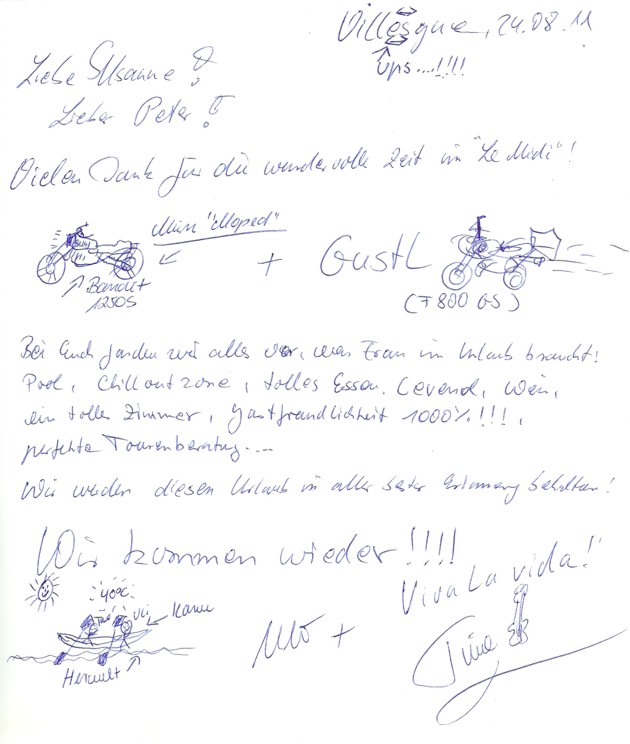 Villesque, 24.08.11
ups...!!!!
Liebe Susanne!
Lieber Peter!
Vielen Dank für die wundervolle Zeit im "Le Midi"!
Mein "Moped"
Bandit
1250S
+ Gustl
(F 800 GS)
Bei Euch fanden wir alles vor, was Frau im Urlaub braucht!
Pool, Chilloutzone, tolles Essen, Wein,
ein tolles Zimmer, Gastfreundlichkeit 1000%!!!,
perfekte Tourenberatung....
Wir werden diesen Urlaub in aller bester Erinnerung behalten!
Wir kommen wieder!!!!
Viva La vida!
40°C
Uli
Kanu
Herault
+ Tina